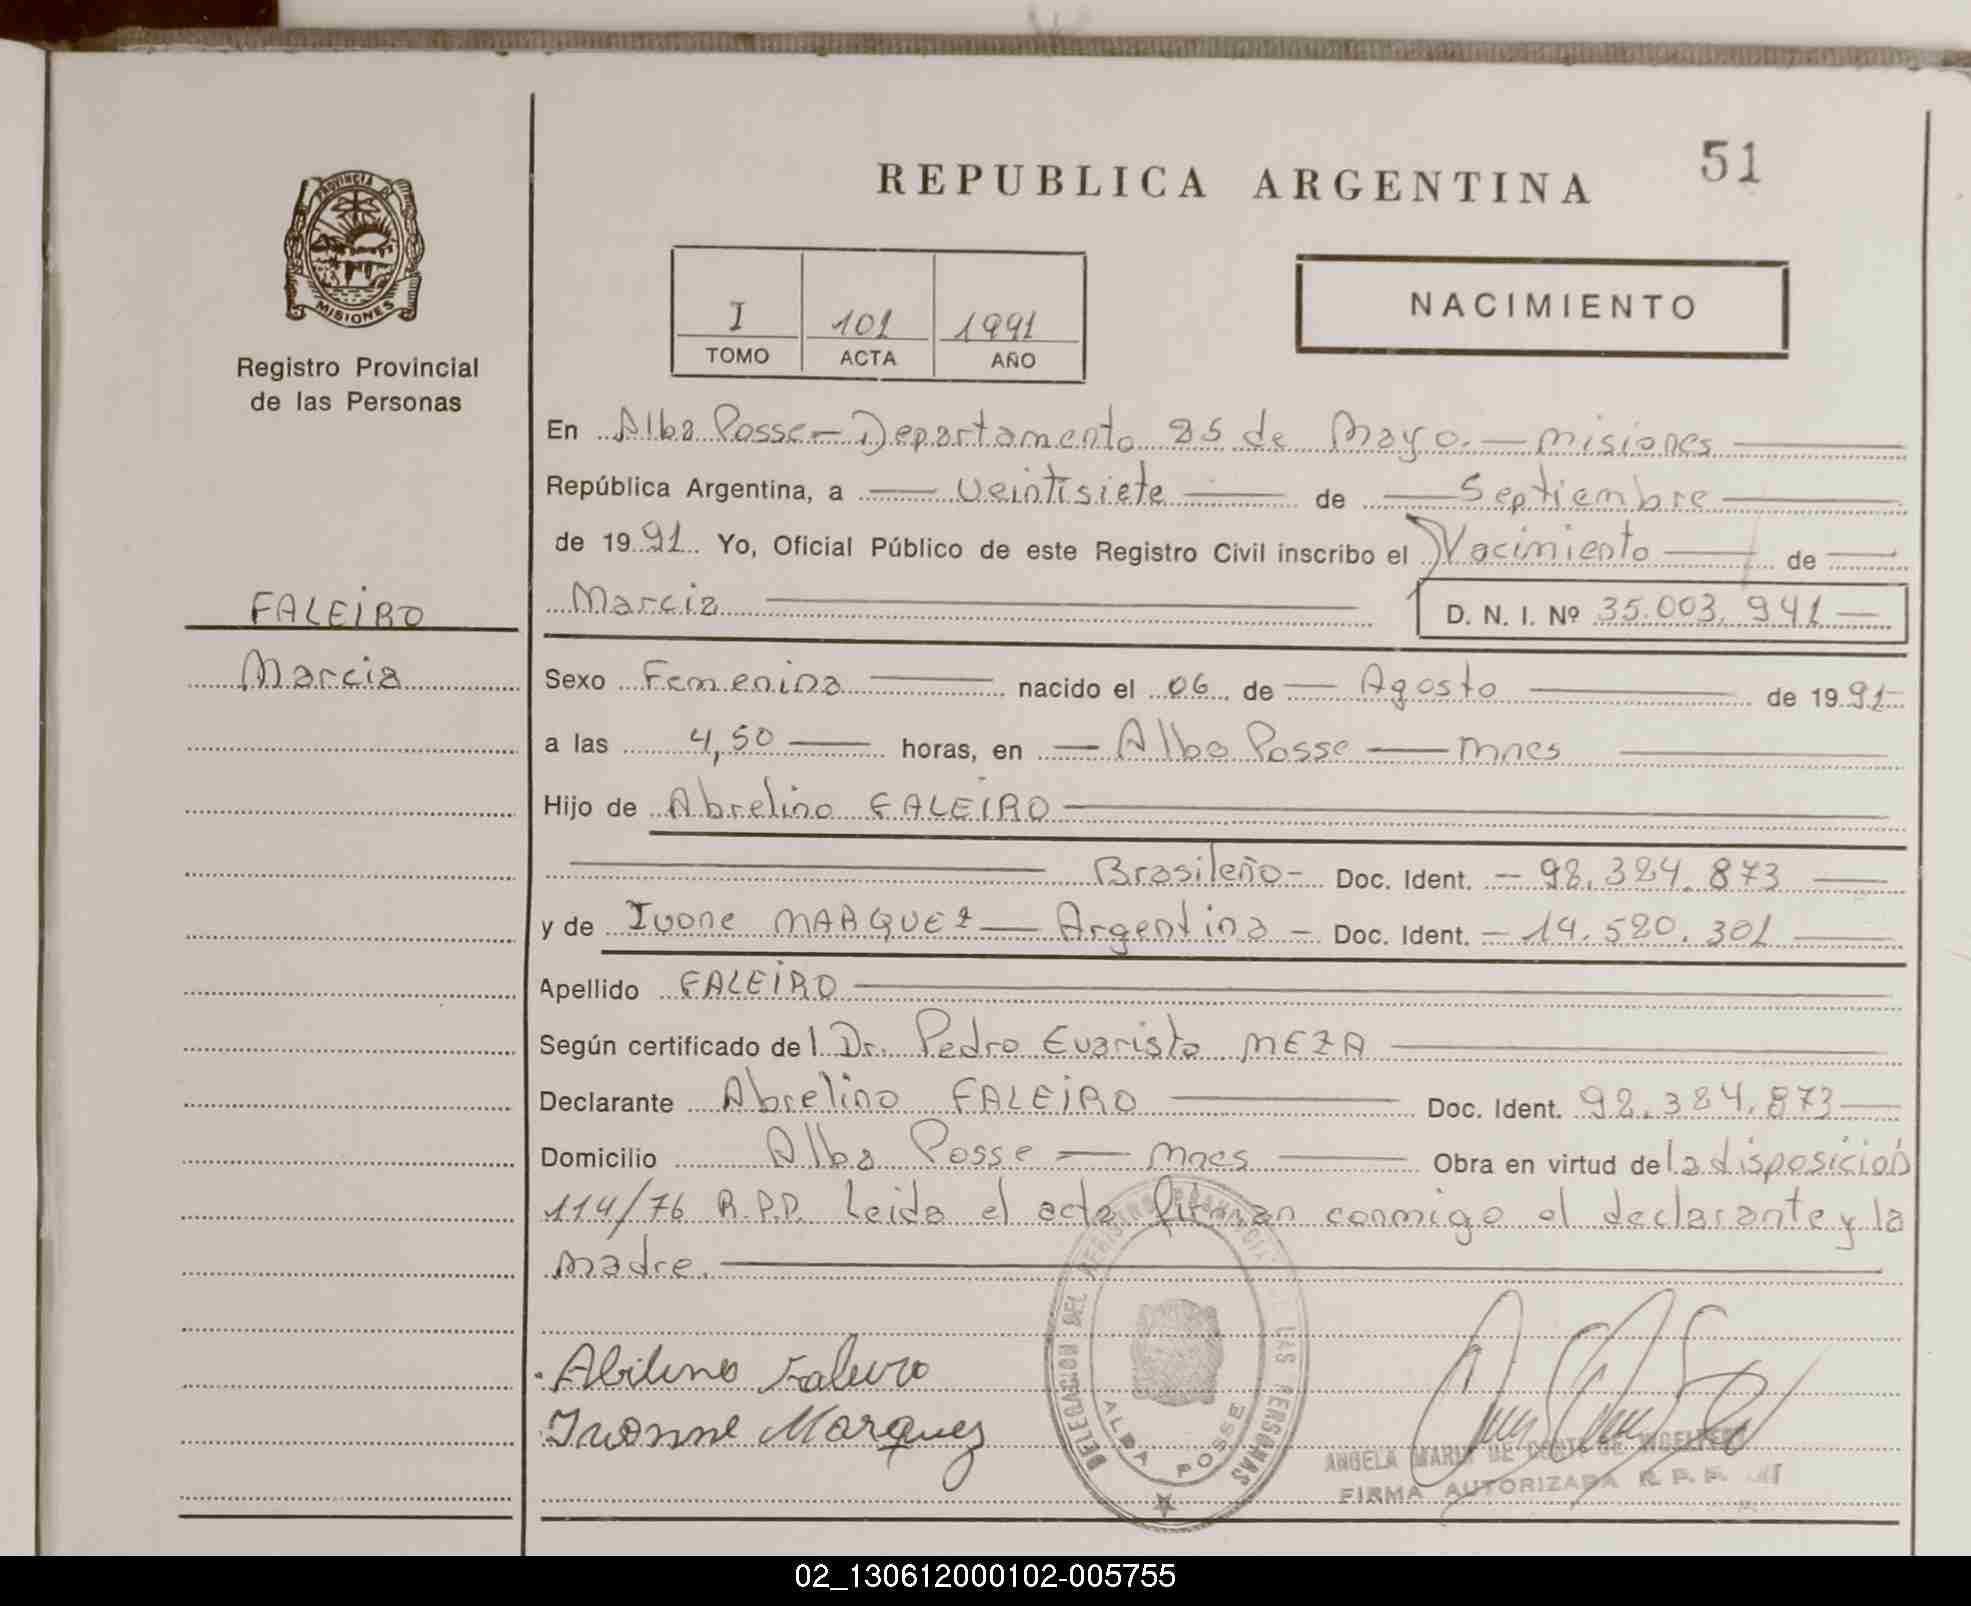 51
REPUBLICA ARGENTINA
PROVINCIA DE
MISIONES
Registro Provincial
de las Personas
I 101 1991
TOMO ACTA AÑO
NACIMIENTO
En Alba Posse - Departamento 25 de Mayo. - Misiones
República Argentina, a Veintisiete de Septiembre
de 1991 Yo, Oficial Público de este Registro Civil inscribo el Nacimiento de
Marcia D. N. I. Nº 35.003.941
FALEIRO
Marcia
Sexo Femenina nacido el 06 de Agosto de 1991
a las 4,50 horas, en Alba Posse - Mnes
Hijo de Abrelino FALEIRO
Brasileño - Doc. Ident. - 92.384.873
y de Ivone MARQUEZ - Argentina - Doc. Ident. - 14.520.301
Apellido FALEIRO
Según certificado del Dr. Pedro Evaristo MEZA
Declarante Abrelino FALEIRO Doc. Ident. 92.384.873
Domicilio Alba Posse - Mnes Obra en virtud de la disposición
114/76 R.P.P. Leida el acta firman conmigo el declarante y la
madre.
Abilino Faleiro
Ivonne Marquez
DELEGACION DEL REGISTRO PROVINCIAL DE LAS PERSONAS
ALBA POSSE
ANGELA MARIA DE
FIRMA AUTORIZADA R. P. P.
02_130612000102-005755